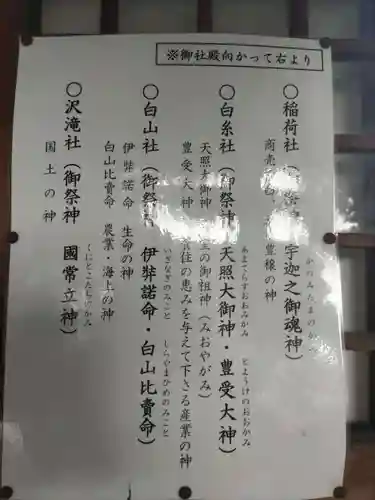 ※御社殿向かって右より
〇稲荷社（御祭神 宇迦之御魂神）
かのみたまの
商売 豊穣の神
〇白糸社（御祭神 天照大御神・豊受大神）
あまてらすおおみかみ とようけのおおかみ
天照大御神 の御祖神（みおやがみ）
豊受大神 住の恵みを与えて下さる産業の神
〇白山社（御祭神 伊弉諾命・白山比賣命）
いざなぎのみこと しらやまひめのみこと
伊弉諾命 生命の神
白山比賣命 農業・海上の神
〇沢滝社（御祭神 國常立神）
くにとこたち かみ
国土の神